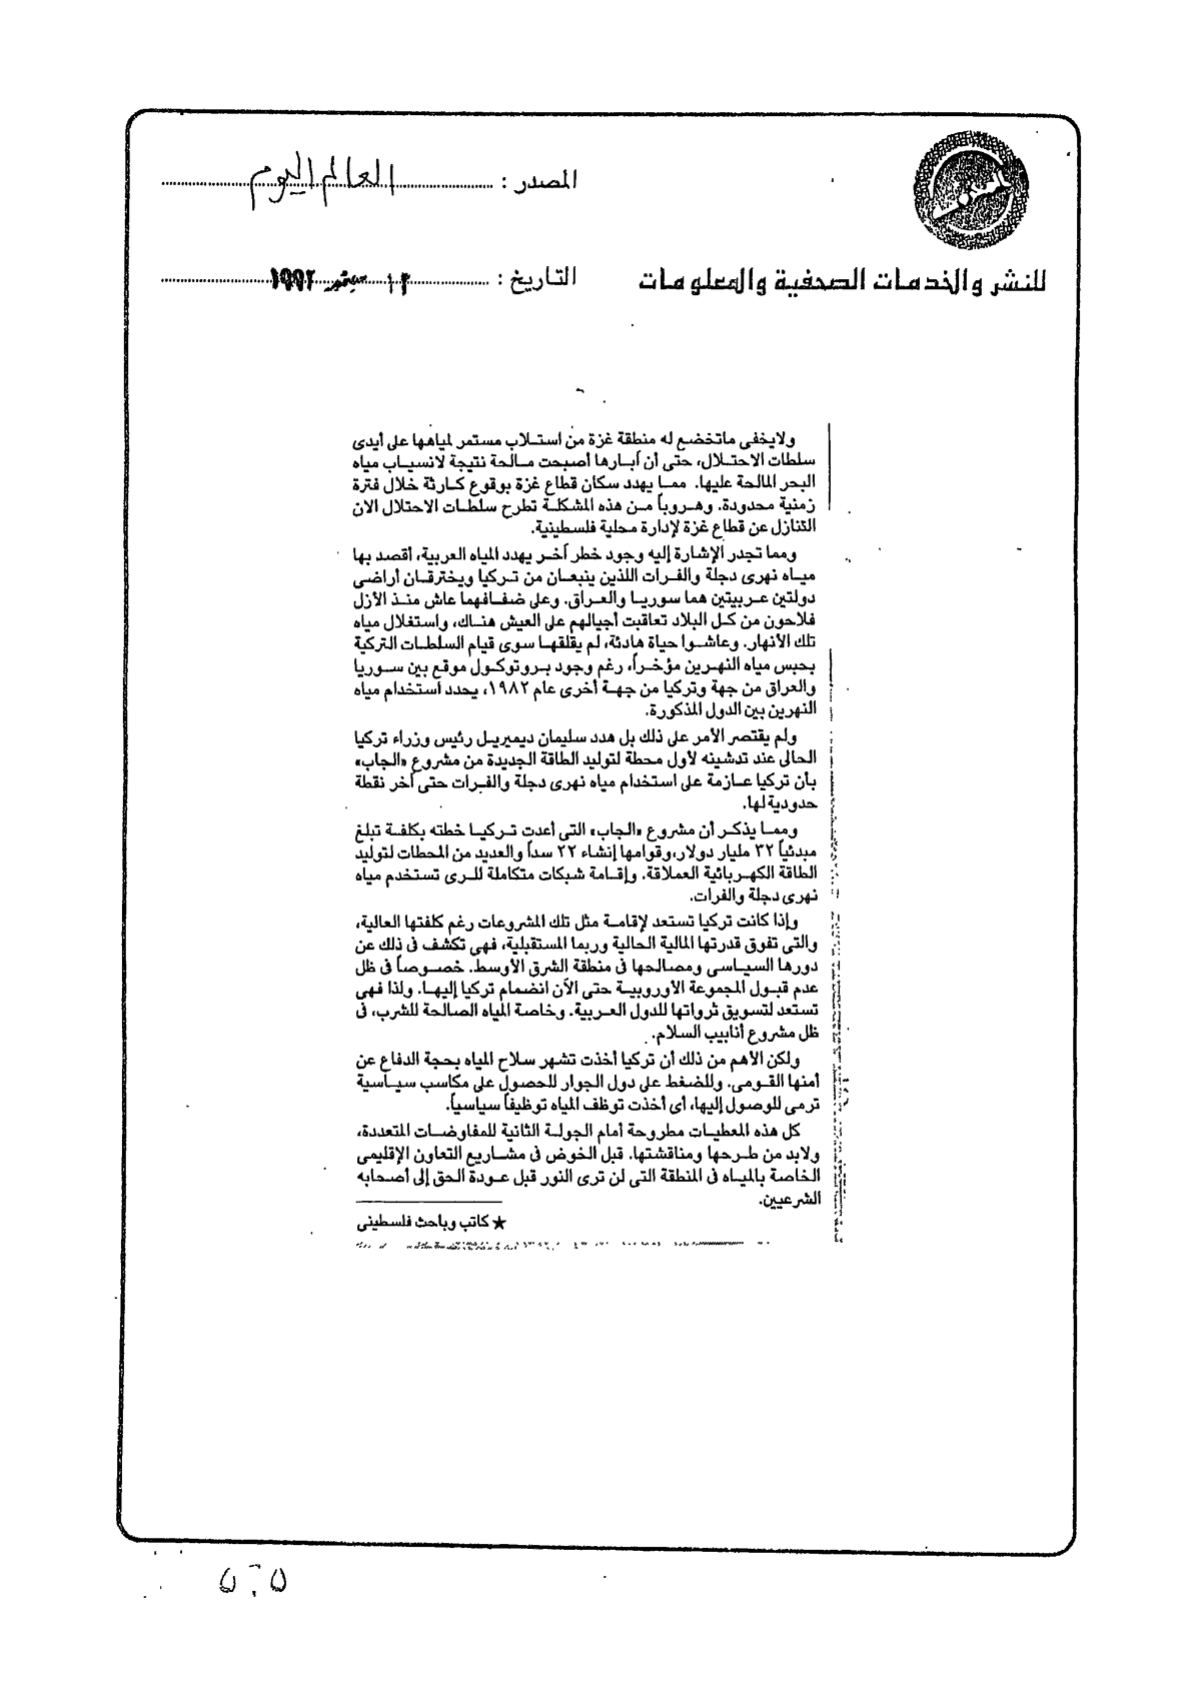 المصدر : العالم اليوم
للنشر والخدمات الصحفية والمعلومات
التاريخ : ١٢ سبتمبر ١٩٩٢
ولايخفى ماتخضع له منطقة غزة من استلاب مستمر لمياهها على أيدى
سلطات الاحتلال، حتى أن آبارها أصبحت مالحة نتيجة لانسياب مياه
البحر المالحة عليها. مما يهدد سكان قطاع غزة بوقوع كارثة خلال فترة
زمنية محدودة. وهروباً من هذه المشكلة تطرح سلطات الاحتلال الان
التنازل عن قطاع غزة لإدارة محلية فلسطينية.
ومما تجدر الإشارة إليه وجود خطر آخر يهدد المياه العربية، أقصد بها
مياه نهرى دجلة والفرات اللذين ينبعان من تركيا ويخترقان أراضى
دولتين عربيتين هما سوريا والعراق. وعلى ضفافهما عاش منذ الأزل
فلاحون من كل البلاد تعاقبت أجيالهم على العيش هناك، واستغلال مياه
تلك الأنهار. وعاشوا حياة هادئة، لم يقلقها سوى قيام السلطات التركية
بحبس مياه النهرين مؤخراً، رغم وجود بروتوكول موقع بين سوريا
والعراق من جهة وتركيا من جهة أخرى عام ١٩٨٢، يحدد استخدام مياه
النهرين بين الدول المذكورة.
ولم يقتصر الأمر على ذلك بل هدد سليمان ديميريل رئيس وزراء تركيا
الحالى عند تدشينه لأول محطة لتوليد الطاقة الجديدة من مشروع «الجاب»
بأن تركيا عازمة على استخدام مياه نهرى دجلة والفرات حتى آخر نقطة
حدودية لها.
ومما يذكر أن مشروع «الجاب» التى أعدت تركيا خطته بكلفة تبلغ
مبدئياً ٣٢ مليار دولار، وقوامها إنشاء ٢٢ سداً والعديد من المحطات لتوليد
الطاقة الكهربائية العملاقة. وإقامة شبكات متكاملة للرى تستخدم مياه
نهرى دجلة والفرات.
وإذا كانت تركيا تستعد لإقامة مثل تلك المشروعات رغم كلفتها العالية،
والتى تفوق قدرتها المالية الحالية وربما المستقبلية، فهى تكشف فى ذلك عن
دورها السياسى ومصالحها فى منطقة الشرق الأوسط. خصوصاً فى ظل
عدم قبول المجموعة الأوروبية حتى الآن انضمام تركيا إليها. ولذا فهى
تستعد لتسويق ثرواتها للدول العربية. وخاصة المياه الصالحة للشرب، فى
ظل مشروع أنابيب السلام.
ولكن الأهم من ذلك أن تركيا أخذت تشهر سلاح المياه بحجة الدفاع عن
أمنها القومى. وللضغط على دول الجوار للحصول على مكاسب سياسية
ترمى للوصول إليها، أى أخذت توظف المياه توظيفاً سياسياً.
كل هذه المعطيات مطروحة أمام الجولة الثانية للمفاوضات المتعددة،
ولابد من طرحها ومناقشتها. قبل الخوض فى مشاريع التعاون الإقليمى
الخاصة بالمياه فى المنطقة التى لن ترى النور قبل عودة الحق إلى أصحابه
الشرعيين.
★ كاتب وباحث فلسطينى